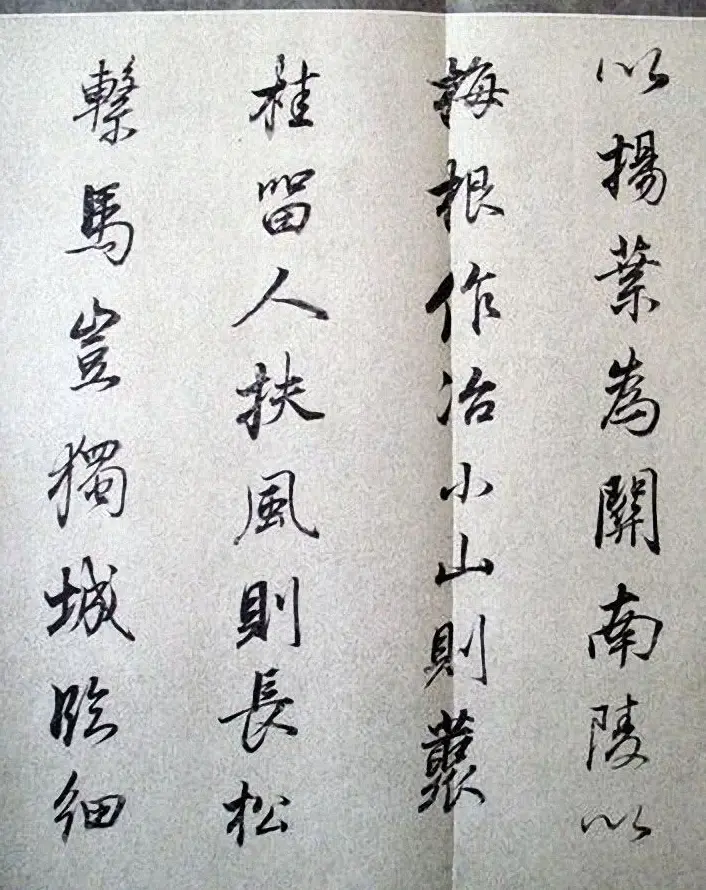 以揚葉為關南陵以
梅根作冶小山則叢
桂留人扶風則長松
繫馬豈獨城臨細